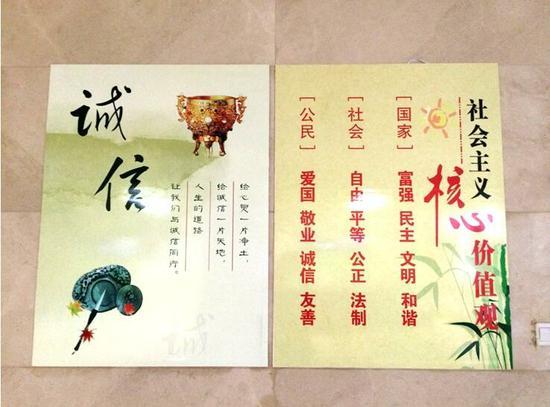 诚信
给心灵一片净土，
给诚信一片天地，
人生的道路
让我们与诚信同行。
社会主义
核心
价值观
［国家］ 富强 民主 文明 和谐
［社会］ 自由 平等 公正 法制
［公民］ 爱国 敬业 诚信 友善